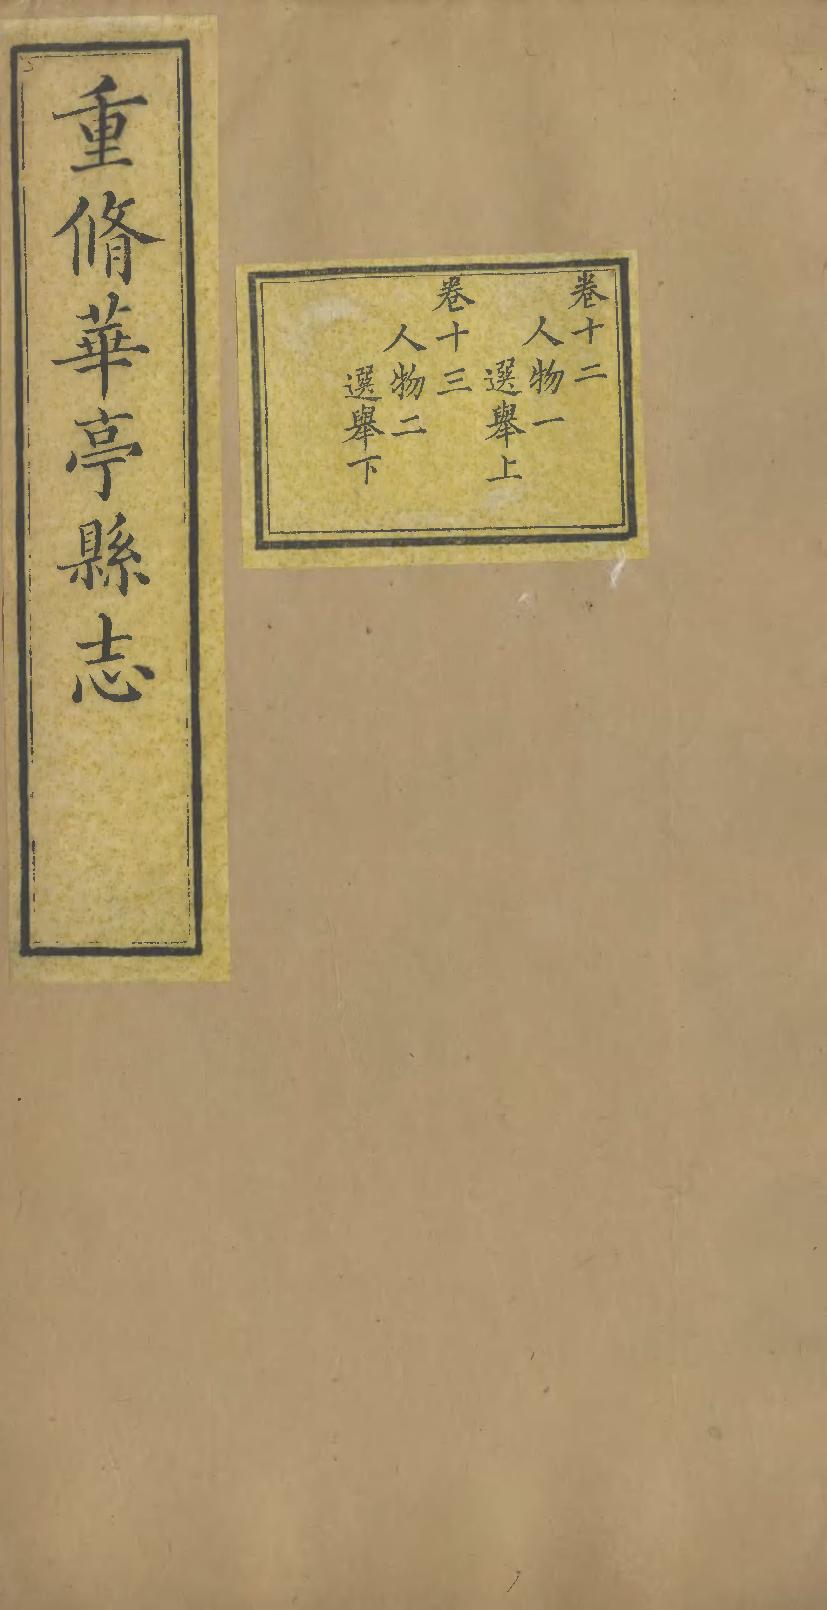 重脩華亭縣志
卷十二
人物一
選舉上
卷十三
人物二
選舉下